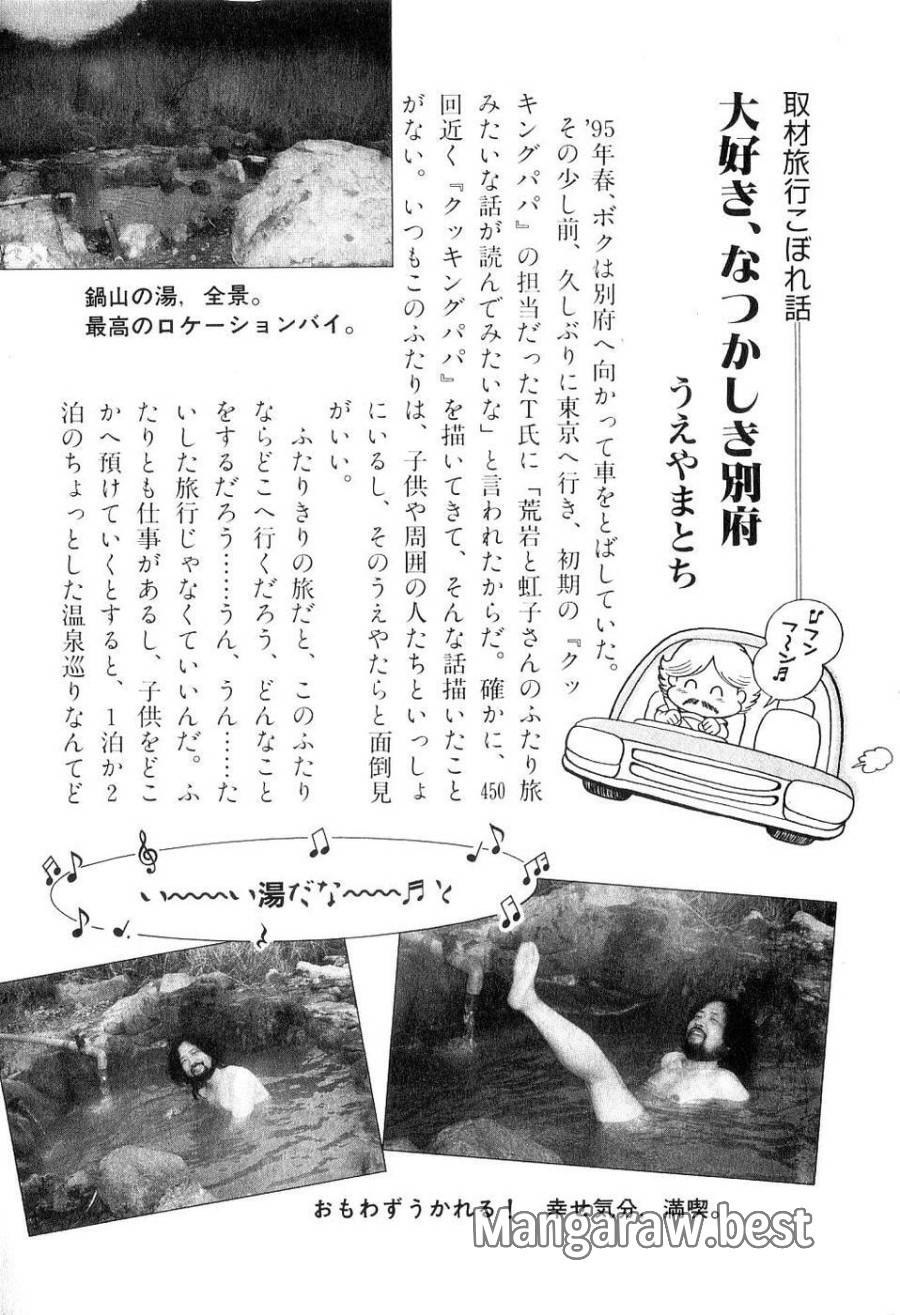 取材旅行こぼれ話
大好き、なつかしき別府
うえやまとち
♫フン
フ〜ン♬
'95年春、ボクは別府へ向かって車をとばしていた。
その少し前、久しぶりに東京へ行き、初期の『クッ
キングパパ』の担当だったT氏に「荒岩と虹子さんのふたり旅
みたいな話が読んでみたいな」と言われたからだ。確かに、450
回近く『クッキングパパ』を描いてきて、そんな話描いたこと
がない。いつもこのふたりは、子供や周囲の人たちといっしょ
にいるし、そのうえやたらと面倒見
がいい。
ふたりきりの旅だと、このふたり
ならどこへ行くだろう、どんなこと
をするだろう……うん、うん……た
いした旅行じゃなくていいんだ。ふ
たりとも仕事があるし、子供をどこ
かへ預けていくとすると、1泊か2
泊のちょっとした温泉巡りなんてど
鍋山の湯，全景。
最高のロケーションバイ。
い〜〜〜い湯だな〜〜〜♬と
おもわずうかれる！ 幸せ気分，満喫。
Mangaraw.best